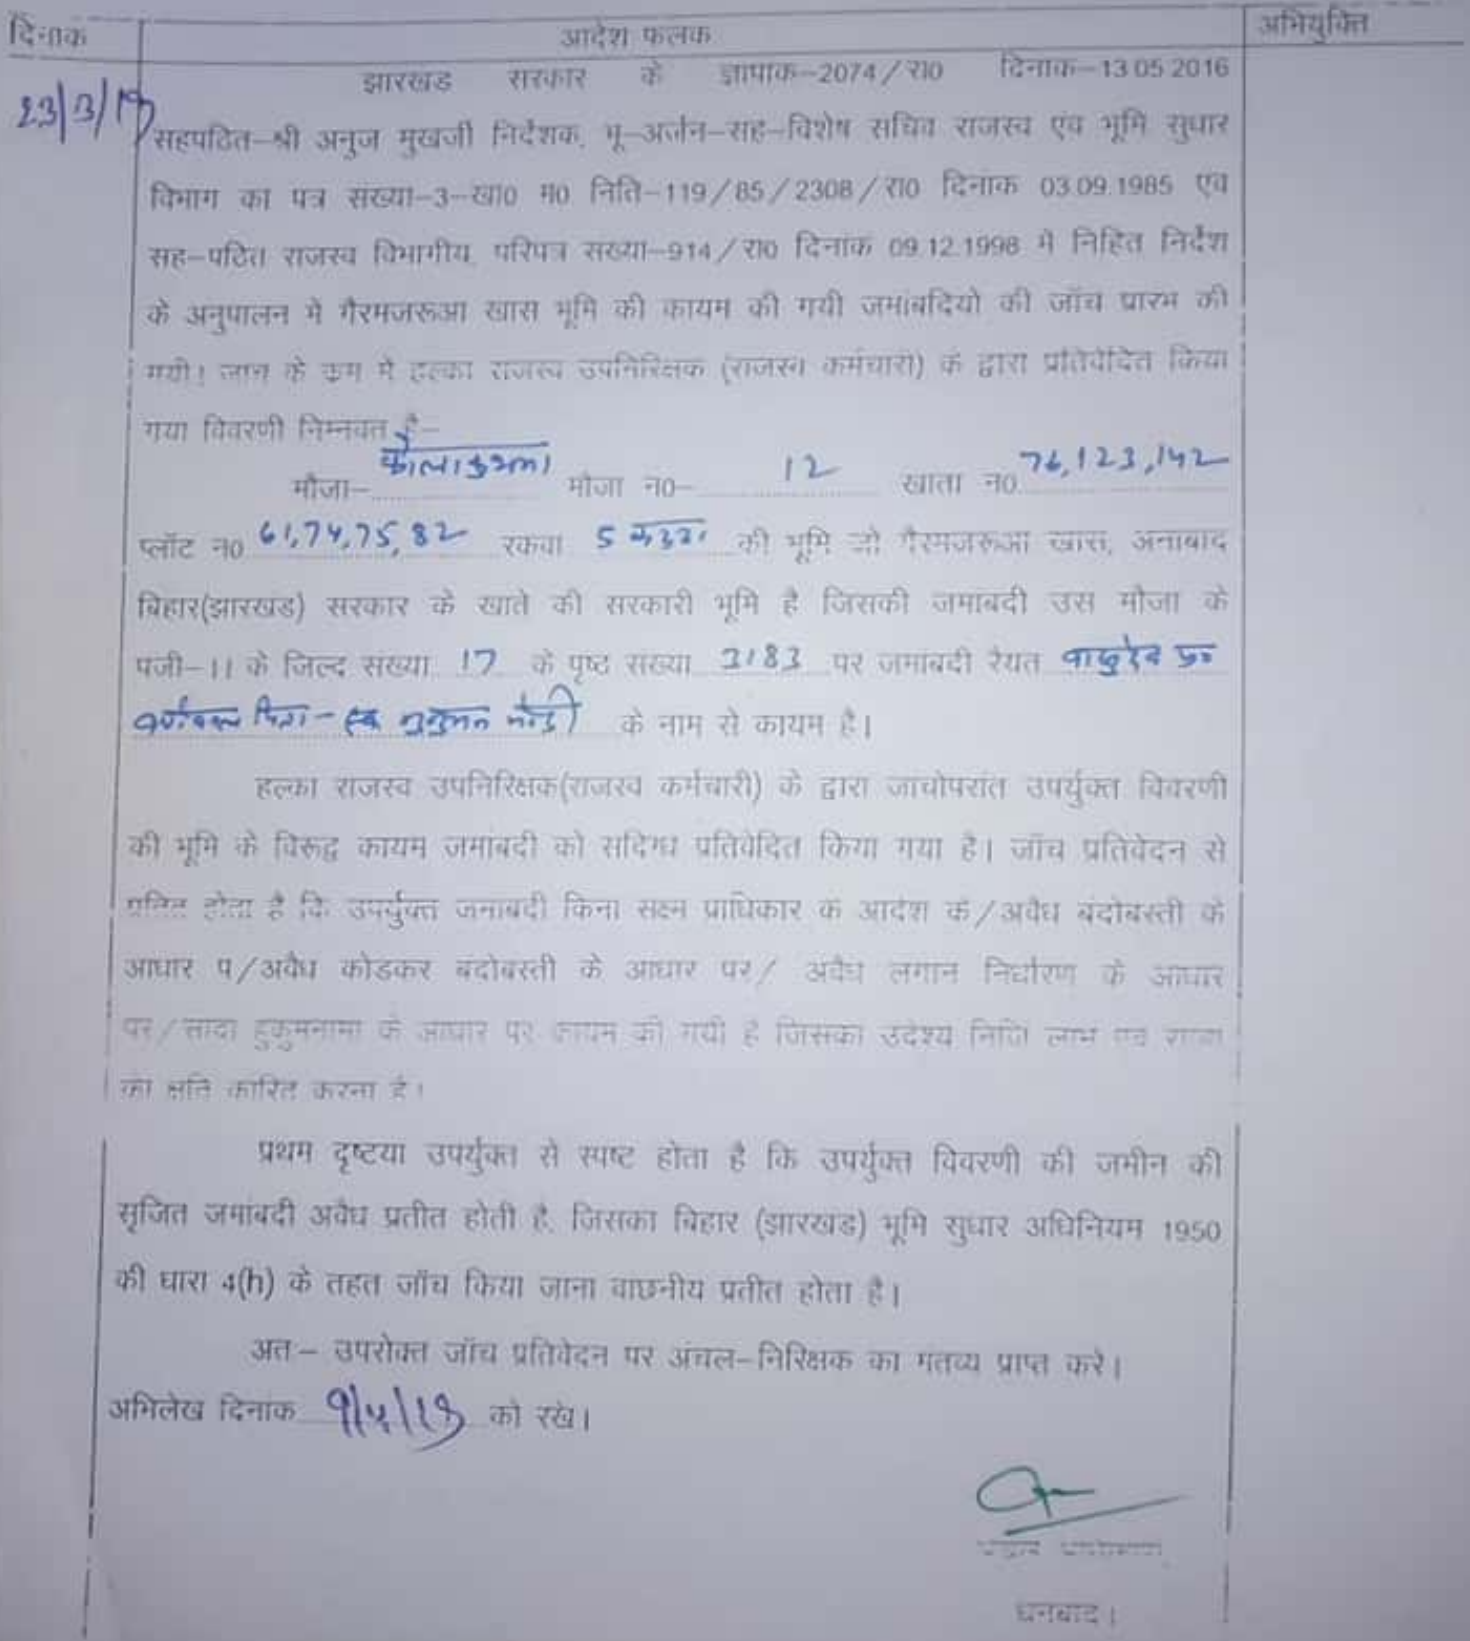 दिनाक आदेश फलक अभियुक्ति
झारखड सरकार के ज्ञापाक–2074/रा0 दिनाक–13 05 2016
23/3/19
सहपठित–श्री अनुज मुखर्जी निर्देशक, भू–अर्जन–सह–विशेष सचिव राजस्व एंव भूमि सुधार
विभाग का पत्र संख्या–3–खा0 म0 निति–119/85/2308/रा0 दिनाक 03.09.1985 एंव
सह–पठित राजस्व विभागीय, परिपत्र संख्या–914/रा0 दिनांक 09.12.1998 मे निहित निर्देश
के अनुपालन मे गैरमजरूआ खास भूमि की कायम की गयी जमांबदियो की जॉच प्रारंभ की
गयी। जाच के क्रम मे हल्का राजस्व उपनिरिक्षक (राजस्व कर्मचारी) के द्वारा प्रतिवेदित किया
गया विवरणी निम्नवत है–
मौजा– मौजा न0– 12 खाता न0 76,123,142
प्लॉट न0 61,74,75,82 रकवा 5 कठ्ठा की भूमि जो गैरमजरूआ खास, अनाबाद
बिहार(झारखड) सरकार के खाते की सरकारी भूमि है जिसकी जमांबदी उस मौजा के
पंजी–11 के जिल्द सख्या 17 के पृष्ट संख्या 3183 पर जमांबदी रैयत वासुदेव प्र०
वर्णवाल पिता– स्व मोदी के नाम से कायम है।
हल्का राजस्व उपनिरिक्षक(राजस्व कर्मचारी) के द्वारा जाचोपरांत उपर्युक्त विवरणी
की भूमि के विरूद्व कायम जमांबदी को सदिग्ध प्रतिवेदित किया गया है। जॉच प्रतिवेदन से
प्रतित होता है कि उपर्युक्त जमाबदी किना सक्ष्म प्राधिकार के आदेश के/अवैध बंदोबस्ती के
आधार प/अवैध कोडकर बदोबस्ती के आधार पर/ अवैध लगान निर्धारण के आधार
पर/सादा हुकुमनामा के आधार पर कायम की गयी है जिसका उदेश्य निजि लाभ एवं राज्य
को क्षति कारित करना है।
प्रथम दृष्टया उपर्युक्त से स्पष्ट होता है कि उपर्युक्त विवरणी की जमीन की
सृजित जमांबदी अवैध प्रतीत होती है, जिसका बिहार (झारखड) भूमि सुधार अधिनियम 1950
की धारा 4(h) के तहत जॉच किया जाना वाछनीय प्रतीत होता है।
अत– उपरोक्त जॉच प्रतिवेदन पर अंचल–निरिक्षक का मतव्य प्राप्त करे।
अभिलेख दिनांक 9/4/19 को रखे।
धनबाद।